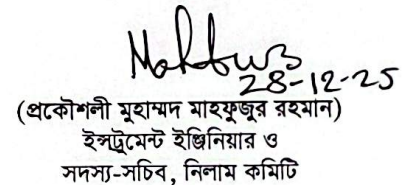 28-12-25
(প্রকৌশলী মুহাম্মদ মাহফুজুর রহমান)
ইন্সট্রুমেন্ট ইঞ্জিনিয়ার ও
সদস্য-সচিব, নিলাম কমিটি